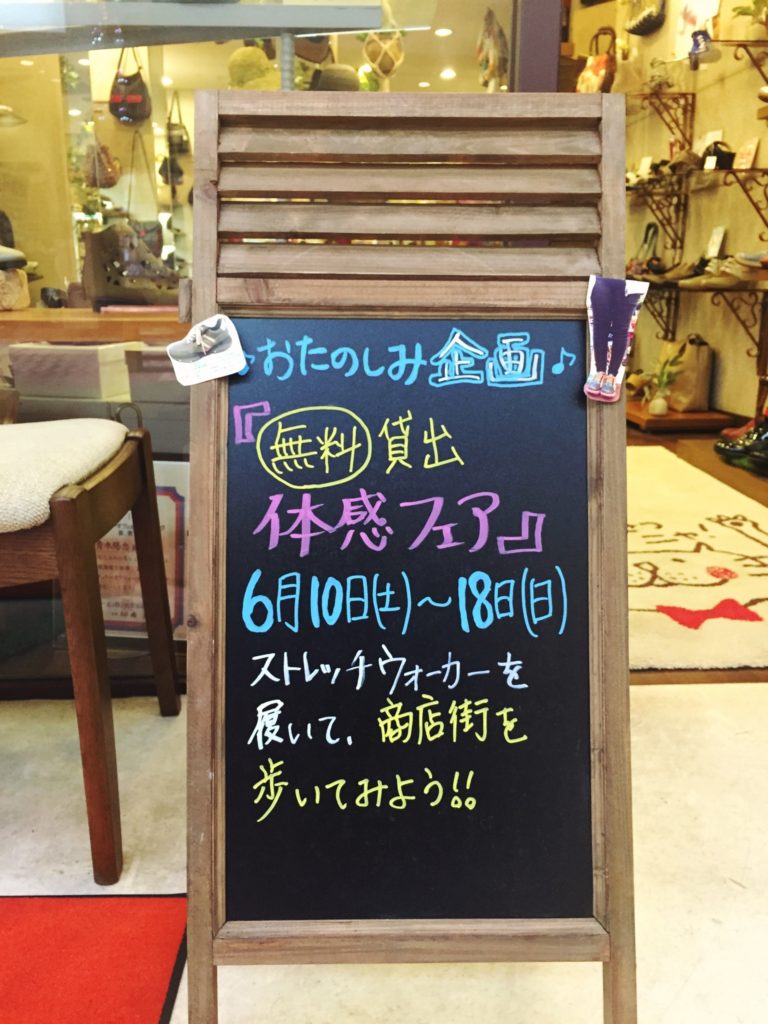 ♪おたのしみ企画♪
『無料貸出
体感フェア』
6月10日(土)～18日(日)
ストレッチウォーカーを
履いて、商店街を
歩いてみよう!!